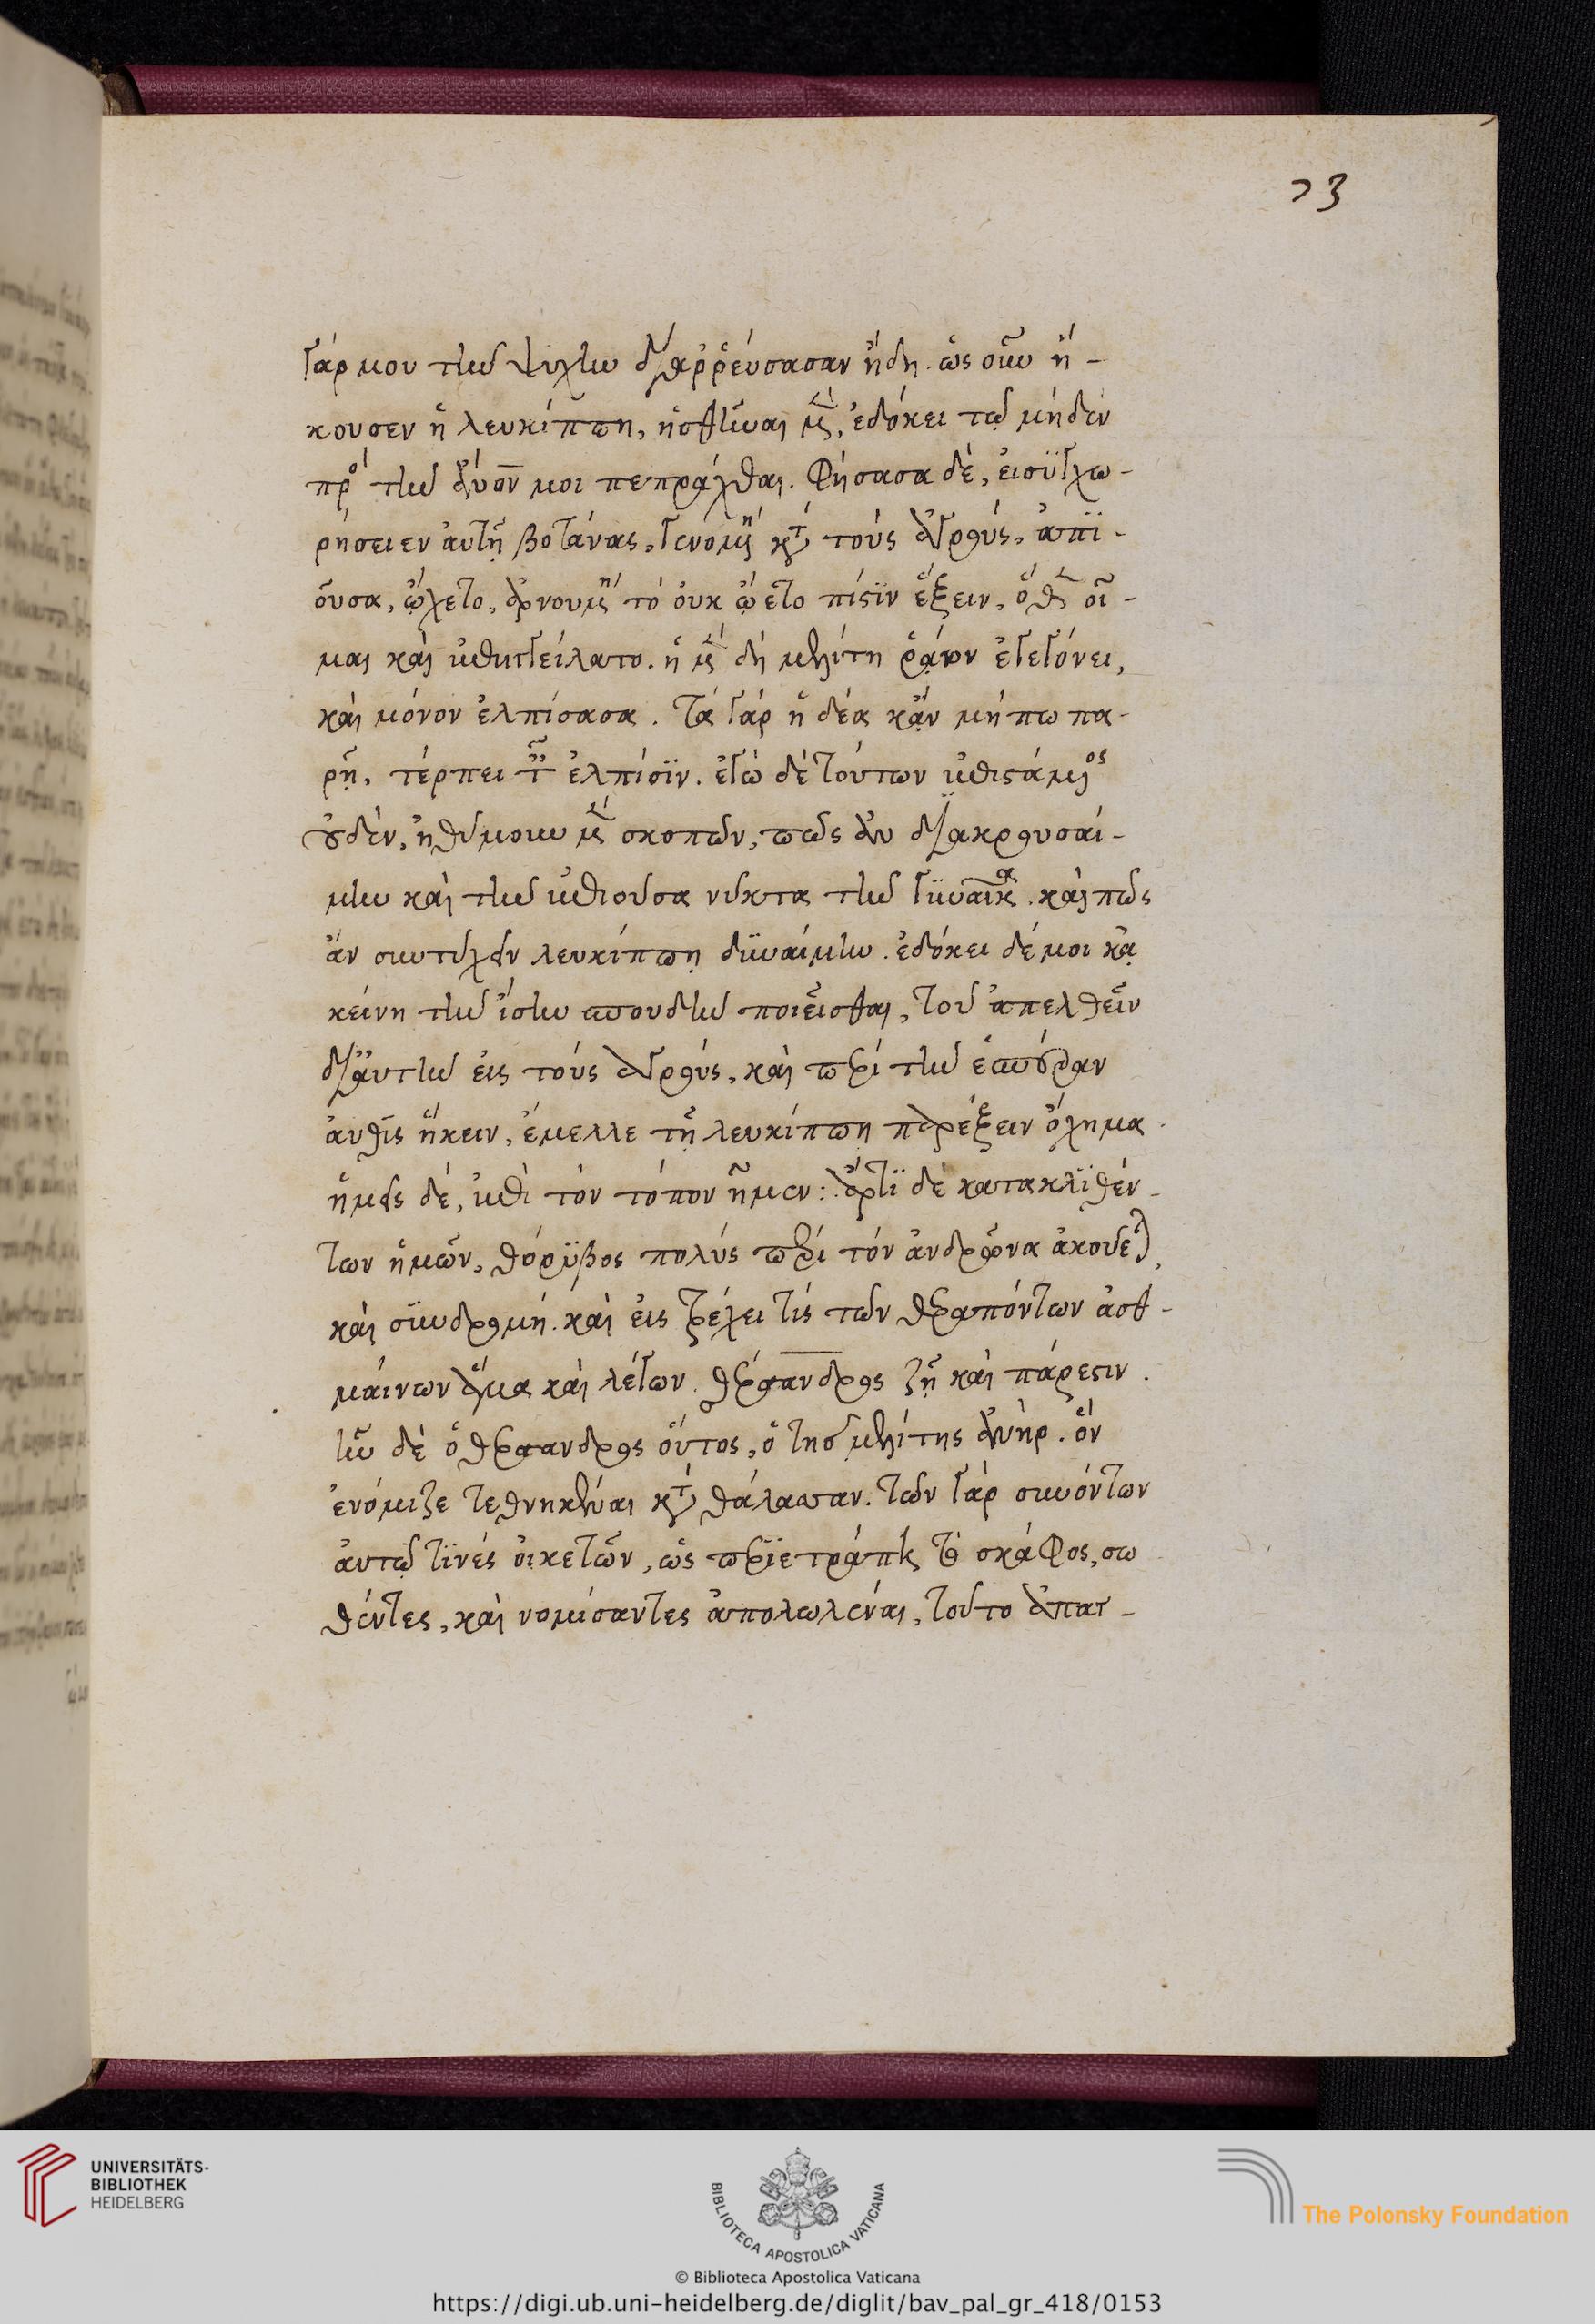 73
γάρ μου τὴν ψυχὴν διαρρεύσασαν ἤδη. ὡς οὖν ἤ-
κουσεν ἡ λευκίππη, ἡσθῆναι μὲν, ἐδόκει τῷ μηδὲν
πρὸς τὴν ἄνον μοι πεπράχθαι. φήσασα δέ, εἰ συγχω-
ρήσειεν αὐτῇ βοτάνας, γενομένη κατὰ τοὺς ἀγροὺς, ἀπϊ-
οῦσα, ᾤχετο, ἀρνουμένη τὸ οὐκ ᾤετο πίστϊν ἕξειν, ὅθεν οἶ-
μαι καὶ ἐπηγγείλατο. ἡ μὲν δὴ μελίτη ῥάων ἐγεγόνει,
καὶ μόνον ἐλπίσασα. τὰ γὰρ ἡδέα κἂν μήπω πα-
ρῇ, τέρπει ταῖς ἐλπίσϊν. ἐγὼ δὲ τούτων ἐπιστάμενος
οὐδέν, ἠθύμουν μὲν σκοπῶν, πῶς ἂν διακρουσαί-
μην καὶ τὴν ἐπιοῦσα νύκτα τὴν γϋναῖκα. καὶ πῶς
ἂν συντυχεῖν λευκίππῃ δϋναίμην. ἐδόκει δέ μοι κἀ
κείνη τὴν ἴσην σπουδὴν ποιεῖσθαι, τοῦ ἀπελθεῖν
δι' αὐτὴν εἰς τοὺς ἀγροὺς, καὶ περὶ τὴν ἑσπέραν
αὖθις ἥκειν, ἔμελλε τῇ λευκίππῃ παρέξειν ὄχημα.
ἡμεῖς δέ, ἐπὶ τὸν τόπον ἦμεν: ἄρτϊ δὲ κατακλϊθέν-
των ἡμῶν, θόρϋβος πολὺς περὶ τὸν ἀνδρῶνα ἀκούεται,
καὶ σϋνδρομή. καὶ εἰστρέχει τις τῶν θεραπόντων ἀσθ-
μαίνων ἅμα καὶ λέγων. θέρσανδρος ζῇ καὶ πάρεστιν.
ἦν δὲ ὁ θέρσανδρος οὗτος, ὁ τῆς μελίτης ἀνήρ. ὃν
ἐνόμιζε τεθνηκέναι κατὰ θάλασσαν. τῶν γὰρ συνόντων
αὐτῷ τϊνές οἰκετῶν, ὡς περϊετράπη τὸ σκάφος, σω
θέντες, καὶ νομίσαντες ἀπολωλέναι, τοῦτο ἀπαγ-
UNIVERSITÄTS-
BIBLIOTHEK
HEIDELBERG
BIBLIOTECA APOSTOLICA VATICANA
The Polonsky Foundation
© Biblioteca Apostolica Vaticana
https://digi.ub.uni-heidelberg.de/diglit/bav_pal_gr_418/0153